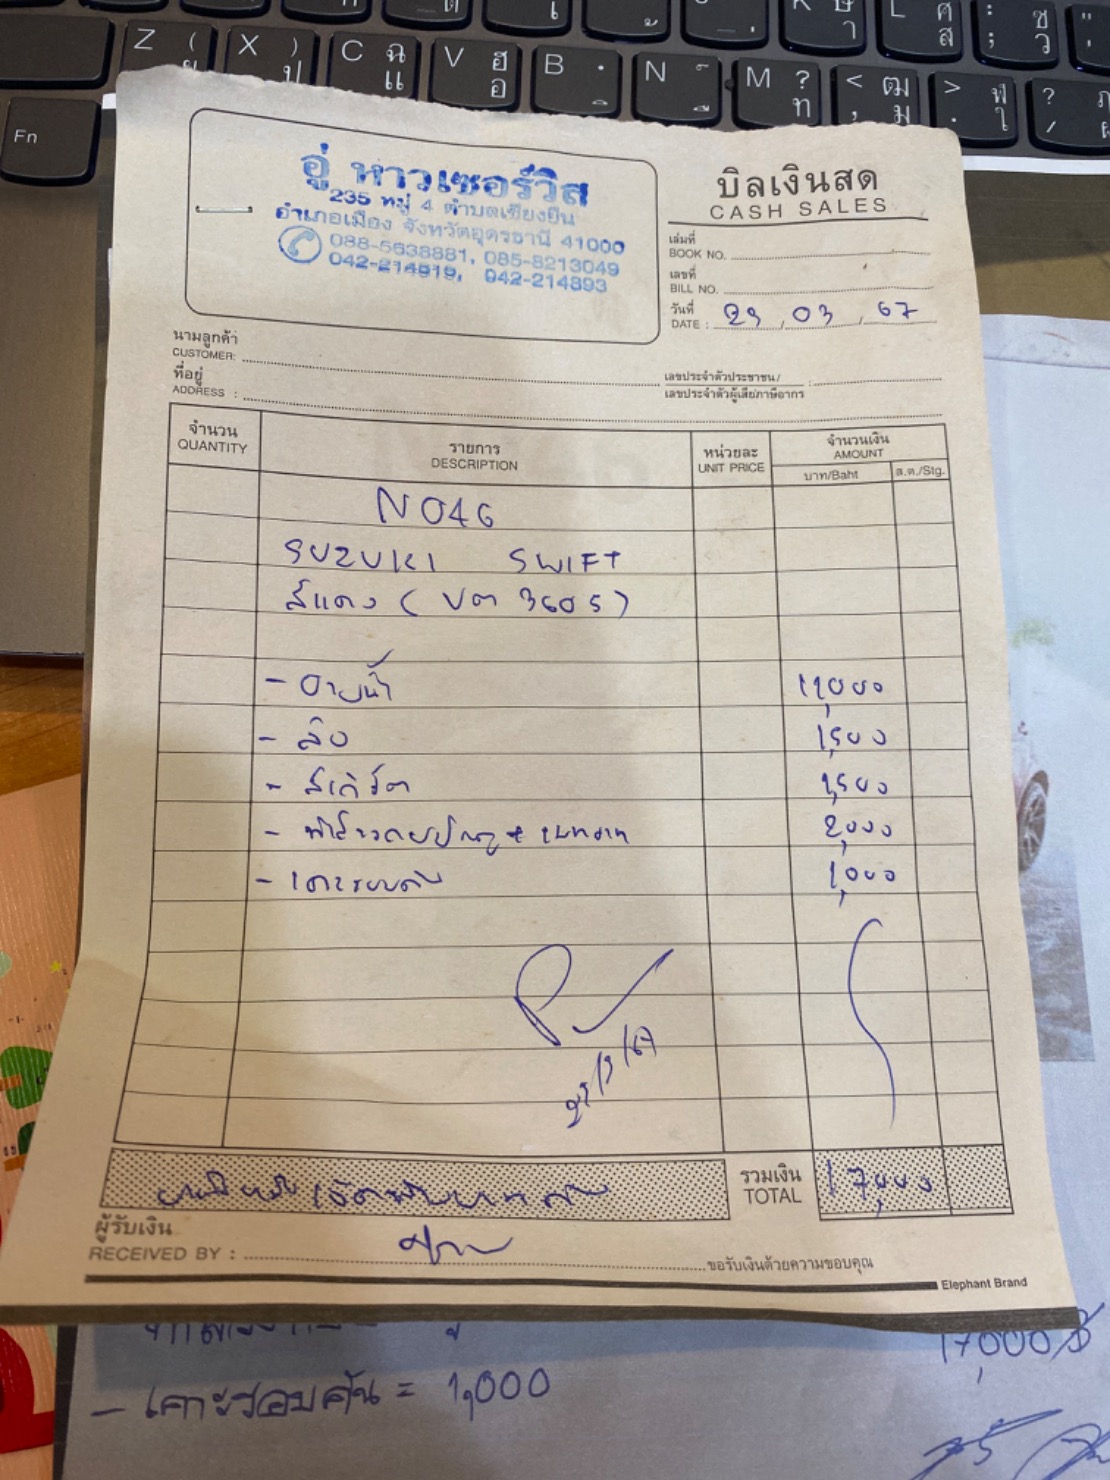 Z ( ย X ) ป C ฉ แ V ฮ อ B N M ? ท < ฒ , ม > ฬ . ใ ? /
K ษ า L ศ ส : ; ซ ว
Fn
อู่ หาวเซอร์วิส
235 หมู่ 4 ตำบลเชียงยืน
อำเภอเมือง จังหวัดอุดรธานี 41000
088-5638881, 085-8213049
042-214919, 042-214893
บิลเงินสด
CASH SALES
เล่มที่
BOOK NO.
เลขที่
BILL NO.
วันที่
DATE : 29, 03, 67
นามลูกค้า
CUSTOMER:
ที่อยู่
ADDRESS :
เลขประจำตัวประชาชน/ :
เลขประจำตัวผู้เสียภาษีอากร
จำนวน
QUANTITY
รายการ
DESCRIPTION
หน่วยละ
UNIT PRICE
จำนวนเงิน
AMOUNT
บาท/Baht
ส.ต./Stg.
NO46
SUZUKI SWIFT
สีแดง ( ขต 3605 )
- อายน้ำ 11,000
- ลิ้น 1,500
- สเกิร์ต 1,500
- 2,000
- เคาะรอบคัน 1,000
รวมเงิน
TOTAL 17,000
หนึ่งหมื่นเจ็ดพันบาทถ้วน
ผู้รับเงิน
RECEIVED BY :
ขอรับเงินด้วยความขอบคุณ
Elephant Brand
17,000 ฿
- เคาะรอบคัน = 1,000